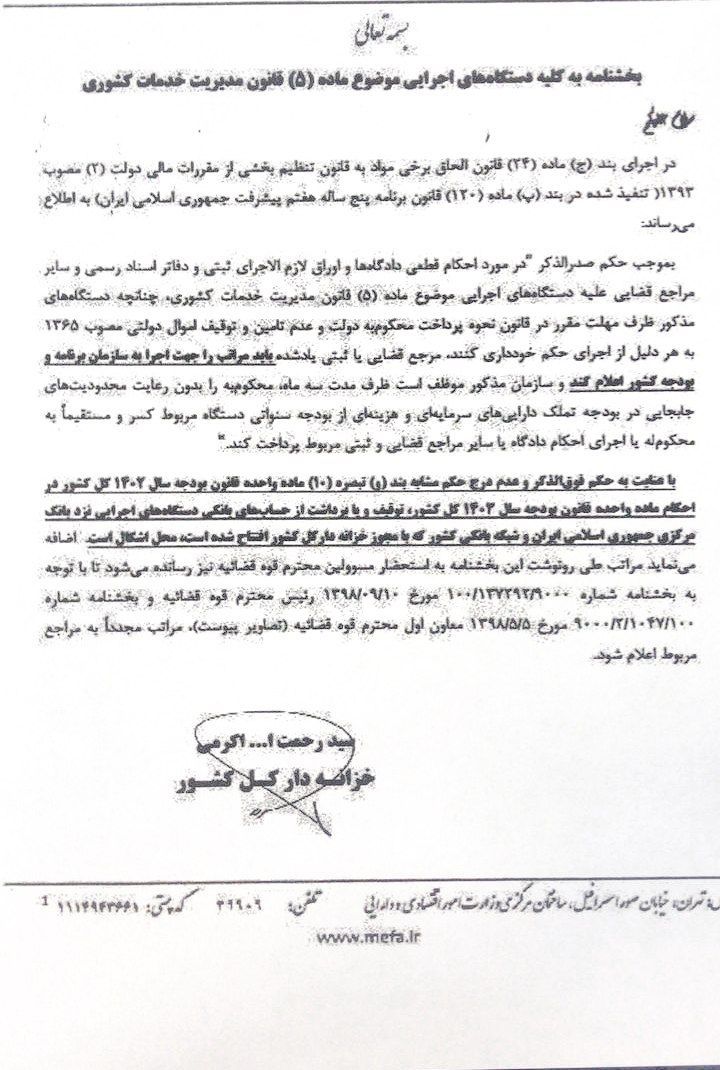 بسمه تعالی
بخشنامه به کلیه دستگاه‌های اجرایی موضوع ماده (۵) قانون مدیریت خدمات کشوری
در اجرای بند (ج) ماده (۲۴) قانون الحاق برخی مواد به قانون تنظیم بخشی از مقررات مالی دولت (۲) مصوب
۱۳۹۳( تنفیذ شده در بند (پ) ماده (۱۲۰) قانون برنامه پنج ساله هفتم پیشرفت جمهوری اسلامی ایران) به اطلاع
می‌رساند:
بموجب حکم صدرالذکر "در مورد احکام قطعی دادگاه‌ها و اوراق لازم الاجرای ثبتی و دفاتر اسناد رسمی و سایر
مراجع قضایی علیه دستگاه‌های اجرایی موضوع ماده (۵) قانون مدیریت خدمات کشوری، چنانچه دستگاه‌های
مذکور ظرف مهلت مقرر در قانون نحوه پرداخت محکوم‌به دولت و عدم تامین و توقیف اموال دولتی مصوب ۱۳۶۵
به هر دلیل از اجرای حکم خودداری کنند، مرجع قضایی یا ثبتی یادشده باید مراتب را جهت اجرا به سازمان برنامه و
بودجه کشور اعلام کند و سازمان مذکور موظف است ظرف مدت سه ماه، محکوم‌به را بدون رعایت محدودیت‌های
جابجایی در بودجه تملک دارایی‌های سرمایه‌ای و هزینه‌ای از بودجه سنواتی دستگاه مربوط کسر و مستقیماً به
محکوم‌له یا اجرای احکام دادگاه یا سایر مراجع قضایی و ثبتی مربوط پرداخت کند."
با عنایت به حکم فوق‌الذکر و عدم درج حکم مشابه بند (و) تبصره (۱۰) ماده واحده قانون بودجه سال ۱۴۰۲ کل کشور در
احکام ماده واحده قانون بودجه سال ۱۴۰۳ کل کشور، توقیف و یا برداشت از حساب‌های بانکی دستگاه‌های اجرایی نزد بانک
مرکزی جمهوری اسلامی ایران و شبکه بانکی کشور که با مجوز خزانه دارکل کشور افتتاح شده است، محل اشکال است. اضافه
می‌نماید مراتب طی رونوشت این بخشنامه به استحضار مسوولین محترم قوه قضائیه نیز رسانده می‌شود تا با توجه
به بخشنامه شماره ۱۰۰/۱۳۷۲۹۲/۹۰۰۰ مورخ ۱۳۹۸/۰۹/۱۰ رئیس محترم قوه قضائیه و بخشنامه شماره
۹۰۰۰/۲/۱۰۴۷/۱۰۰ مورخ ۱۳۹۸/۵/۵ معاون اول محترم قوه قضائیه (تصاویر پیوست)، مراتب مجدداً به مراجع
مربوط اعلام شود.
سید رحمت ا... اکرمی
خزانه دار کل کشور
تهران، خیابان صوراسرافیل، ساختمان مرکزی وزارت امور اقتصادی و دارایی تلفن: ۳۹۹۰۹ کدپستی: ۱۱۱۴۹۴۳۶۶۱ 1
www.mefa.ir